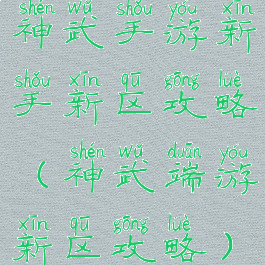 shén wǔ shǒu yóu xīn
神武手游新
shǒu xīn qū gōng lüè
手新区攻略
shén wǔ duān yóu
（神武端游
xīn qū gōng lüè
新区攻略）